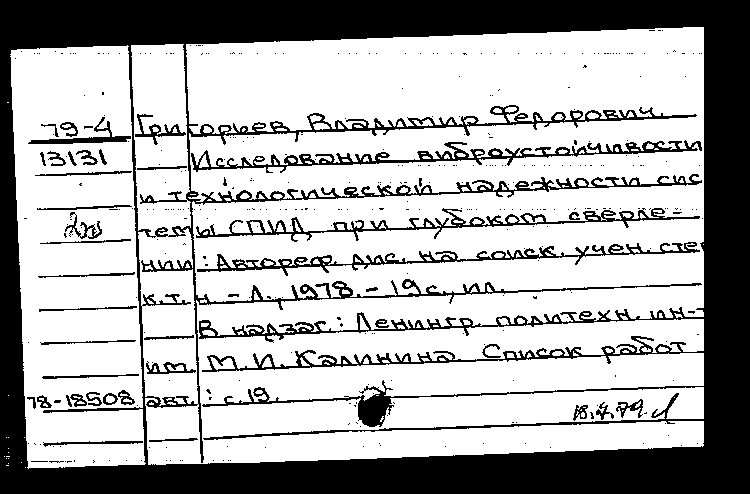 79-4 Григорьев, Владимир Федорович.
13131 Исследование виброустойчивости
и технологической надежности сис
темы СПИД при глубоком сверле-
нии : Автореф. дис. на соиск. учен. степ
к.т.н. - Л., 1978. - 19 с., ил.
В надзаг.: Ленингр. политехн. ин-т
им. М.И. Калинина. Список работ
78-18508 авт.: с. 19.
18.4.79.